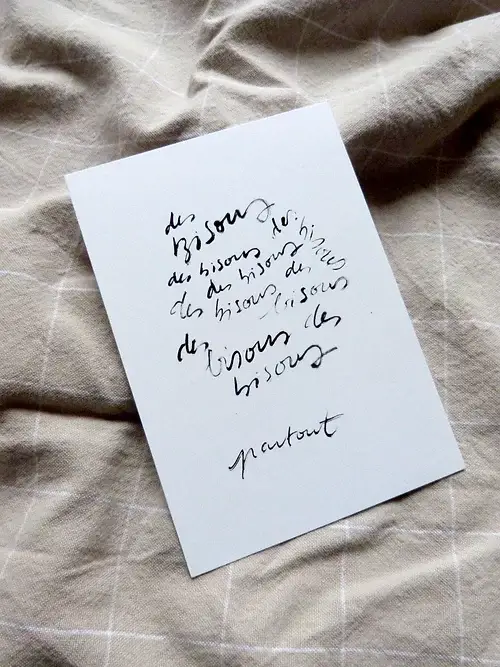 des
Bisous
des bisous des
des bisous bisous
des bisous des des
bisous
des bisous des
bisous
partout